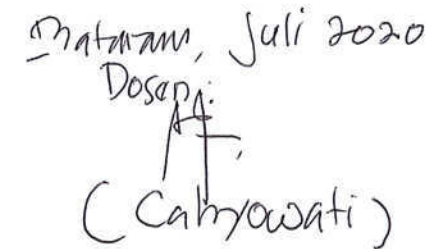 Mataram, Juli 2020
Dosen:
(Cahyowati)